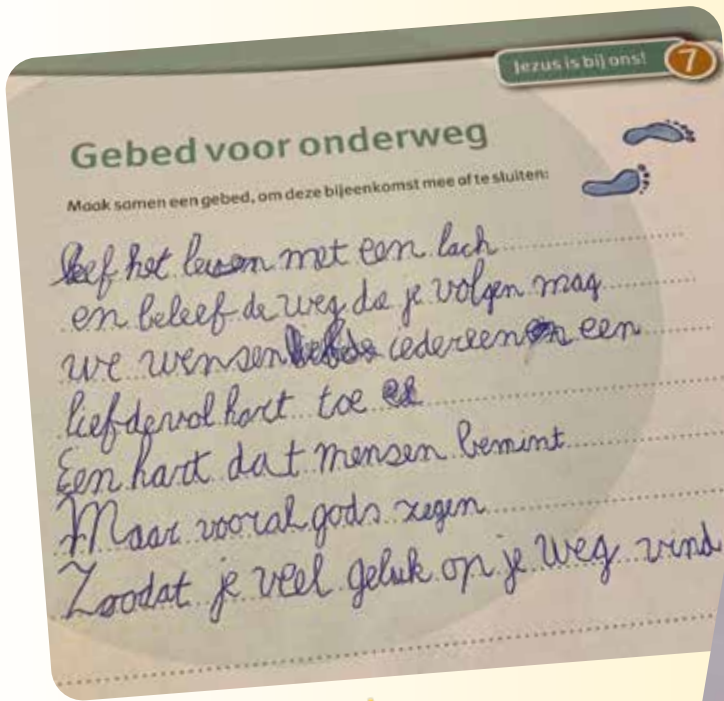 Jezus is bij ons!
7
Gebed voor onderweg
Maak samen een gebed, om deze bijeenkomst mee af te sluiten:
Leef het leven met een lach
en beleef de weg da je volgen mag
we wensen iedereen een
liefdevol hart toe
Een hart dat mensen bemint
Maar vooral gods zegen
Zoodat je veel geluk op je weg vind